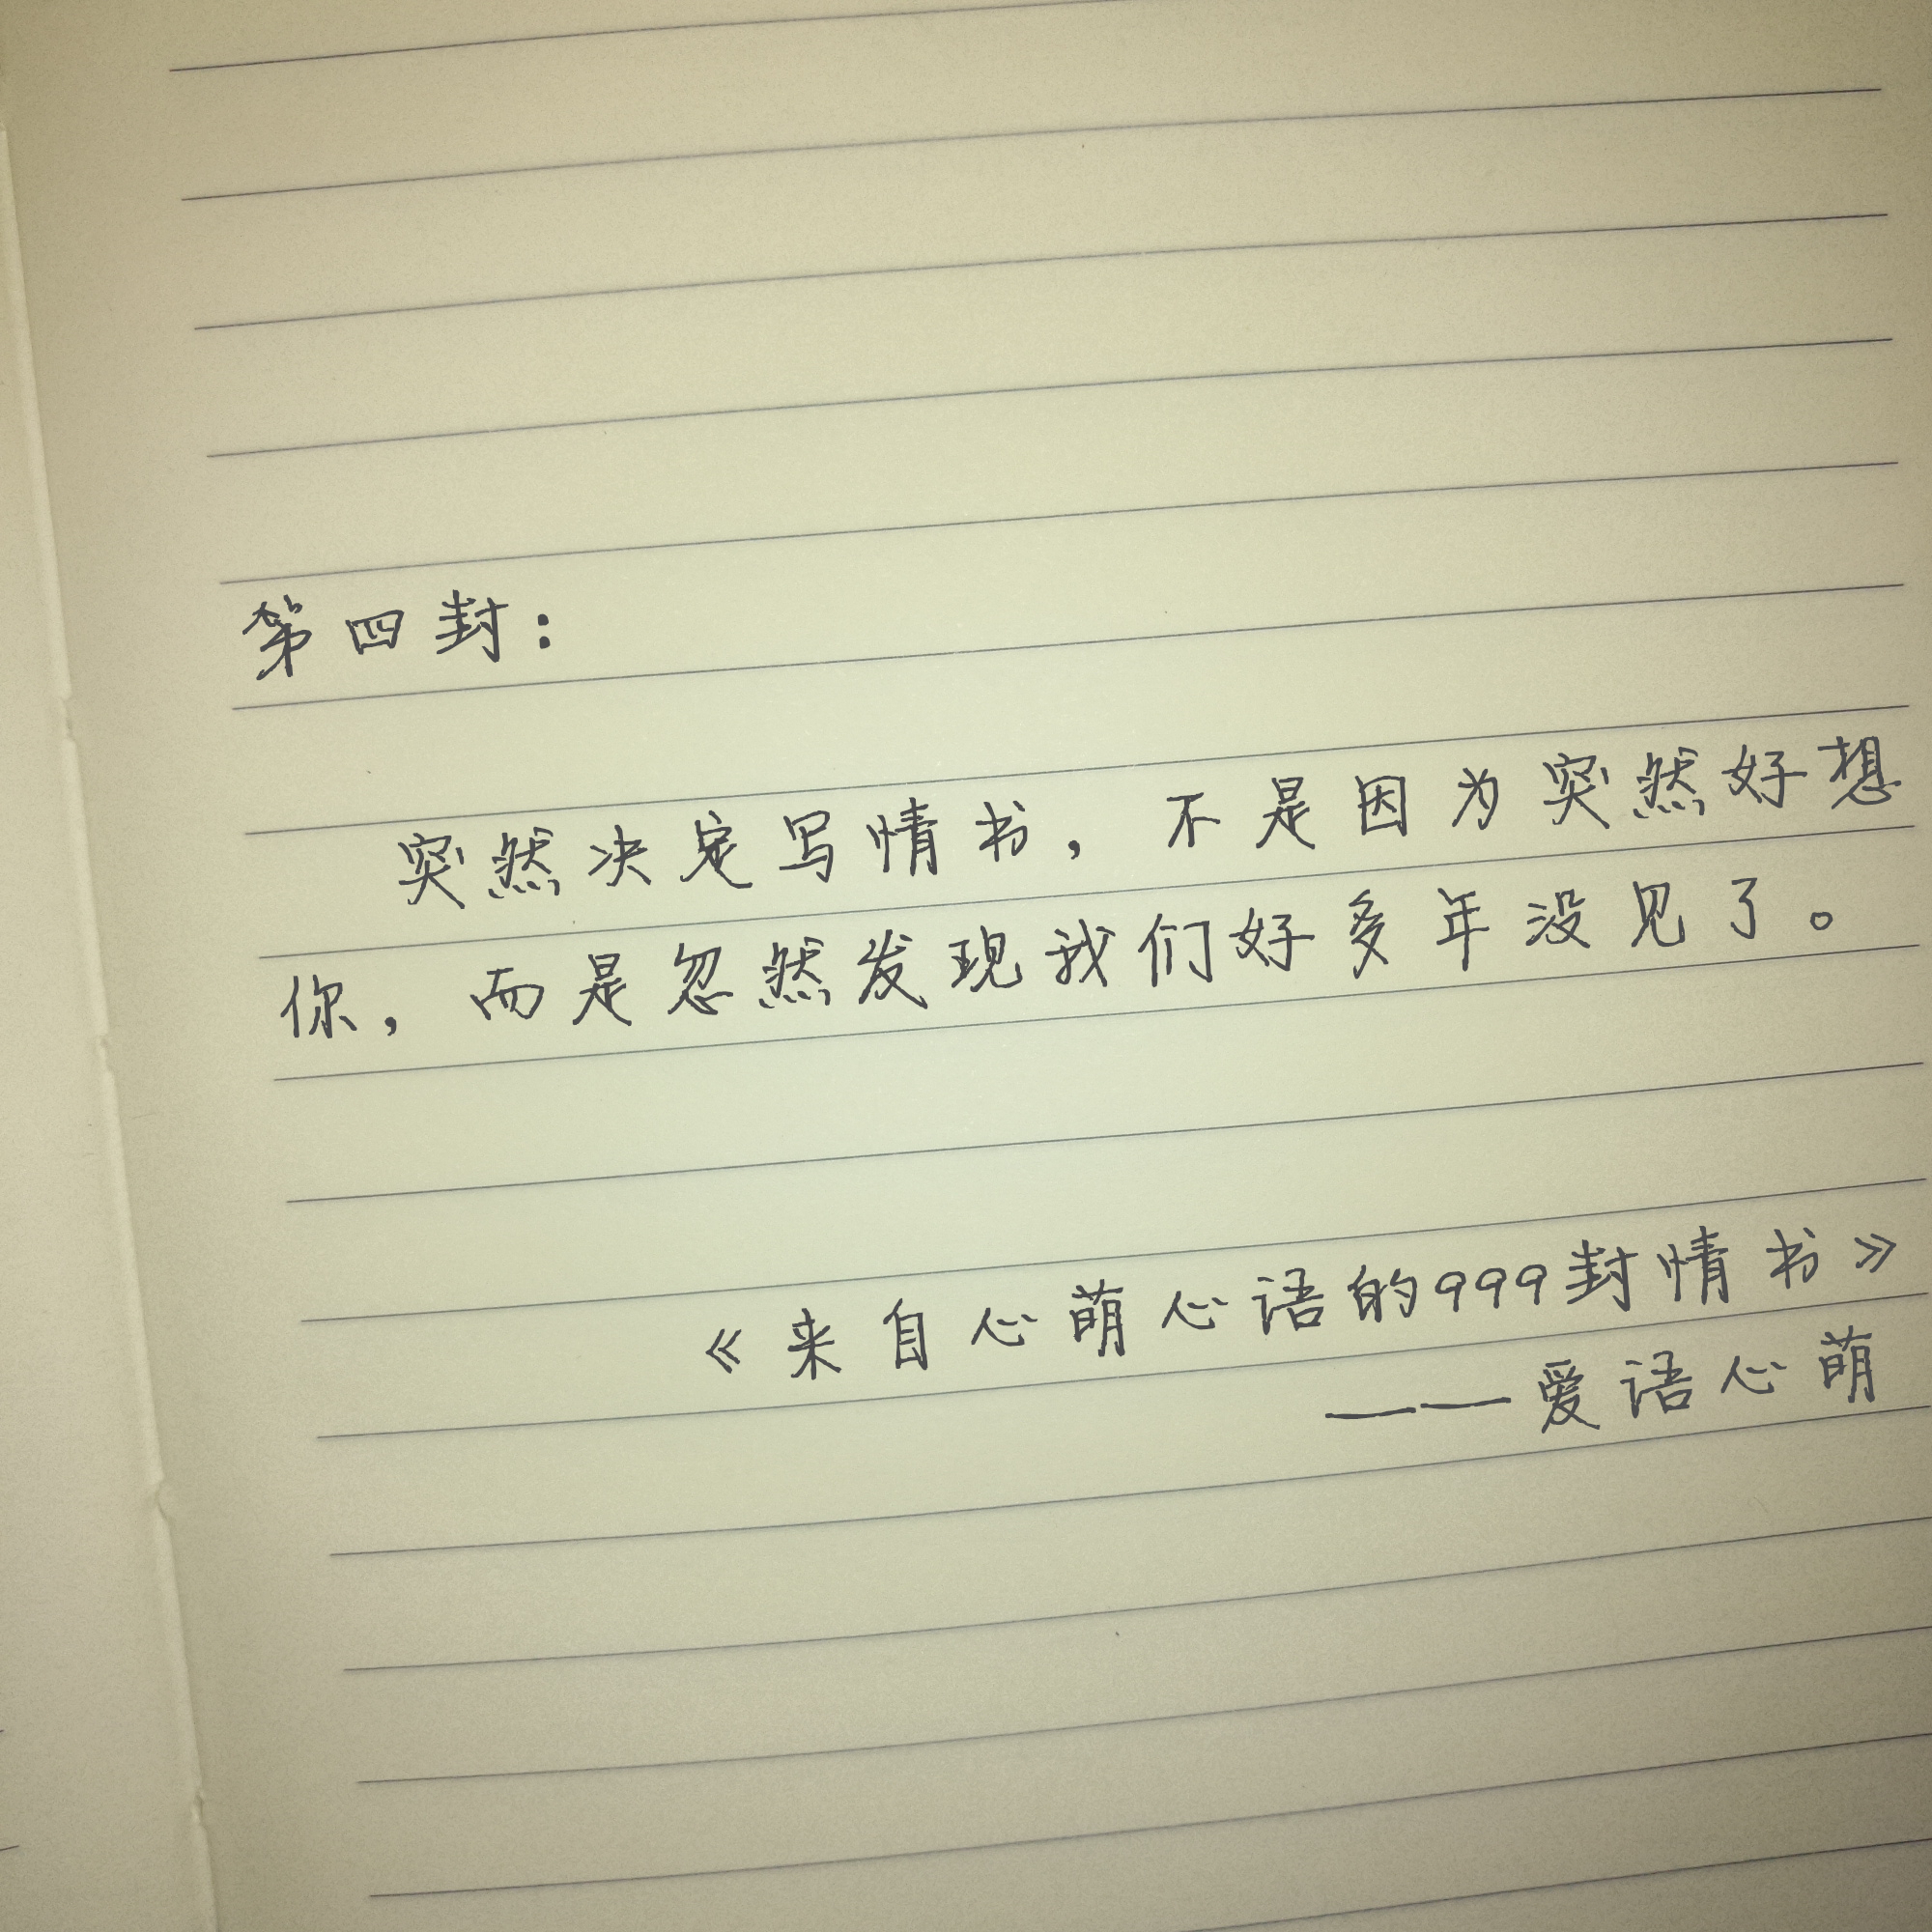 第四封：
突然决定写情书，不是因为突然好想
你，而是忽然发现我们好多年没见了。
《来自心萌心语的999封情书》
——爱语心萌